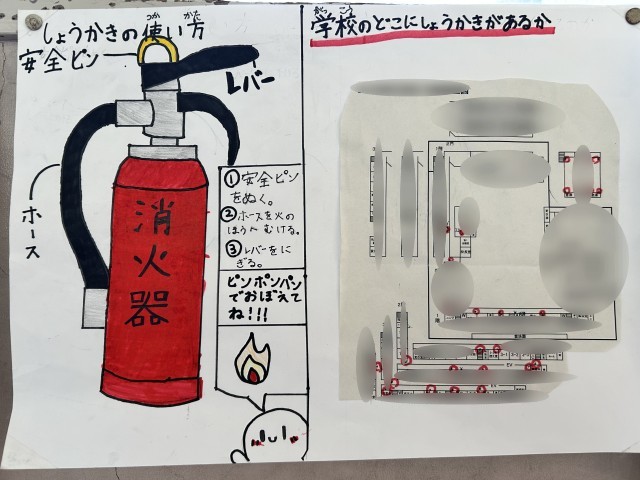 しょうかきの使い方
つか かた
安全ピン
レバー
ホース
消火器
①安全ピン
をぬく。
②ホースを火の
ほうへむける。
③レバーをに
ぎる。
ピンポンパン
でおぼえて
ね!!!
がっ こう
学校のどこにしょうかきがあるか
EV
EV